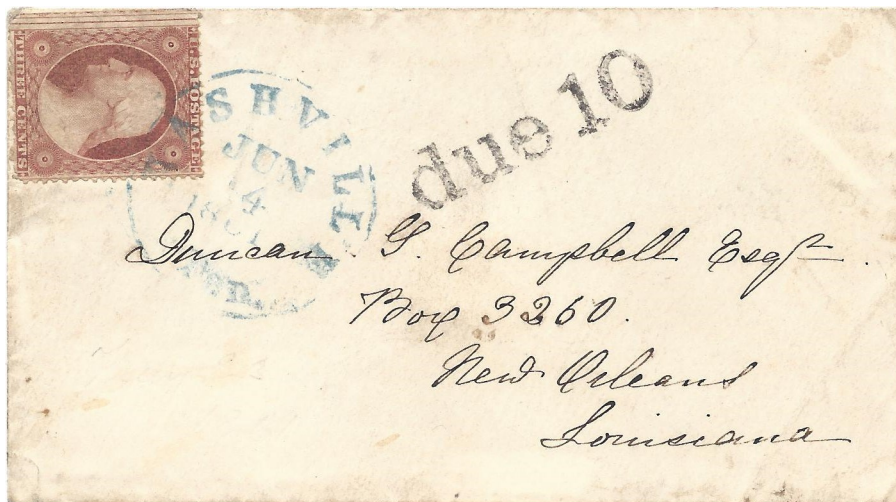 U.S. POSTAGE
THREE CENTS
NASHVILLE
JUN
14
1861
due 10
Duncan G. Campbell Esqr.
Box 3260.
New Orleans
Louisiana